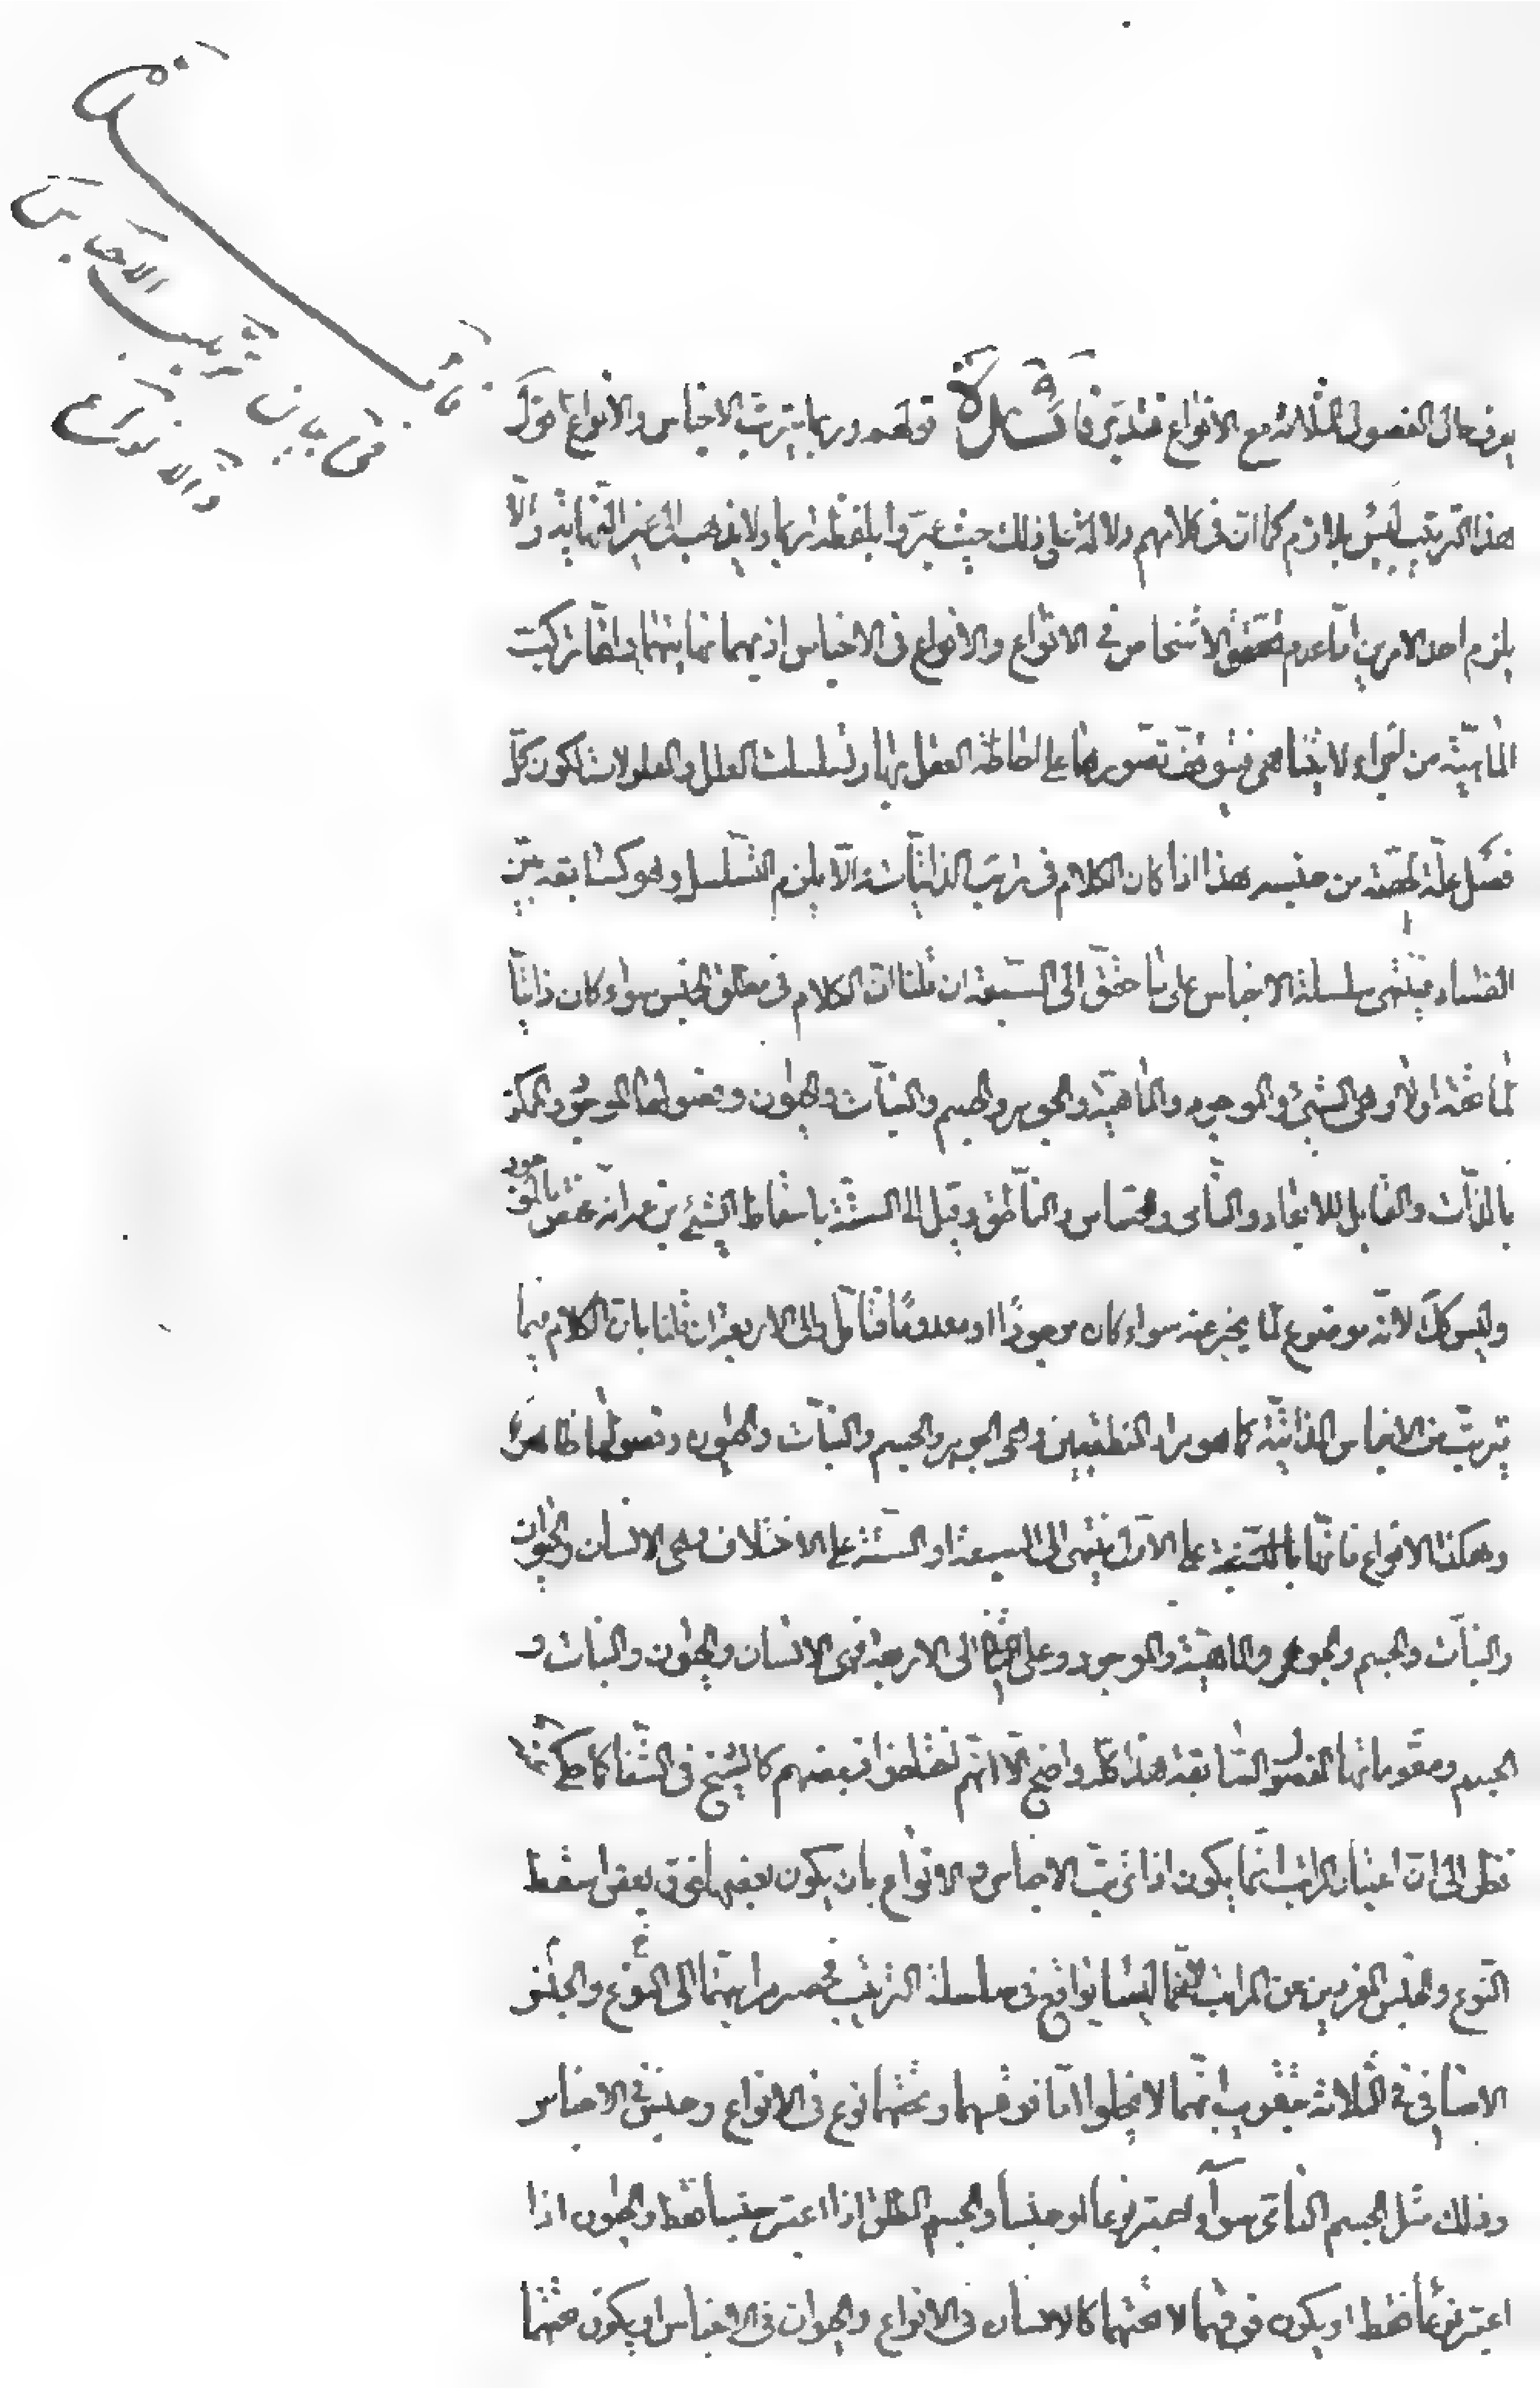 فائدة
في بيان ترتيب الاجناس
والانواع
يعرف حال الفصول الثلاثة مع الانواع فائدة قولهم وربما يترتب الاجناس والانواع اقول
هذا الترتيب ليس بلازم كما ان في كلامهم دلالة على ذلك حيث عبروا بلفظة ربما ولا يذهب الى غير النهاية والا
يلزم احد الامرين اما عدم تحقق الاشخاص في الانواع والانواع في الاجناس اذ بهما نهايتهما واما تركب
الماهية من اجزاء لا يتناهى فيتوقف تصورها على احاطة العقل بها وتسلسلت العلل والمعلولات لكون كل
فصل علة لحصة من جنسه هذا اذا كان الكلام في مراتب الذاتيات والا يلزم التسلسل وهو كسابقه بين
الفساد فينتهى سلسلة الاجناس على ما حقق الى السبعة ان قلنا ان الكلام في مطلق الجنس سواء كان ذاتيا
لما تحته اولا وهى الشيء والموجود والماهية والجوهر والجسم والنبات والحيوان وفصولها الموجود
بالذات والقابل للابعاد والنامى والحساس والناطق وقيل الى الستة باسقاط الشيء
وليس كك لانه موضوع لما يخبر عنه سواء كان موجودا او معدوما فتأمل والى الاربعة ان قلنا بان الكلام فيما
يترتب من الاجناس الذاتية كما هو مراد المنطقيين وهى الجوهر والجسم والنبات والحيوان وفصولها ظاهرة
وهكذا الانواع فانها على الاول ينتهى الى السبعة او الستة على الاختلاف وهى الانسان والحيوان
والنبات والجسم والجوهر والماهية والموجود وعلى الثاني الى الاربعة فهى الانسان والحيوان والنبات و
الجسم ومقوماتها الفصول السابقة هذا كله واضح الا انهم اختلفوا فبعضهم كالشيخ في الشفا كما حكى عنه
نظر الى ان اعتبار المراتب انما يكون اذا ترتب الاجناس والانواع بان يكون بعضها فوق بعض اسقط
النوع والجنس المفردين عن المراتب لانهما ليسا بواقع في سلسلة الترتيب فحصر مراتبهما الى النوع والجنس
الاضافي في الثلاثة بتقريب انهما لا يخلوا اما فوقهما وتحتهما نوع في الانواع وجنس في الاجناس
وذلك مثل الجسم النامى سواء اعتبر نوعا او جنسا والجسم المطلق اذا اعتبر جنسا فقط والحيوان اذا
اعتبر نوعا فقط او يكون فوقهما لا تحتهما كالانسان في الانواع والحيوان في الاجناس او يكون تحتهما